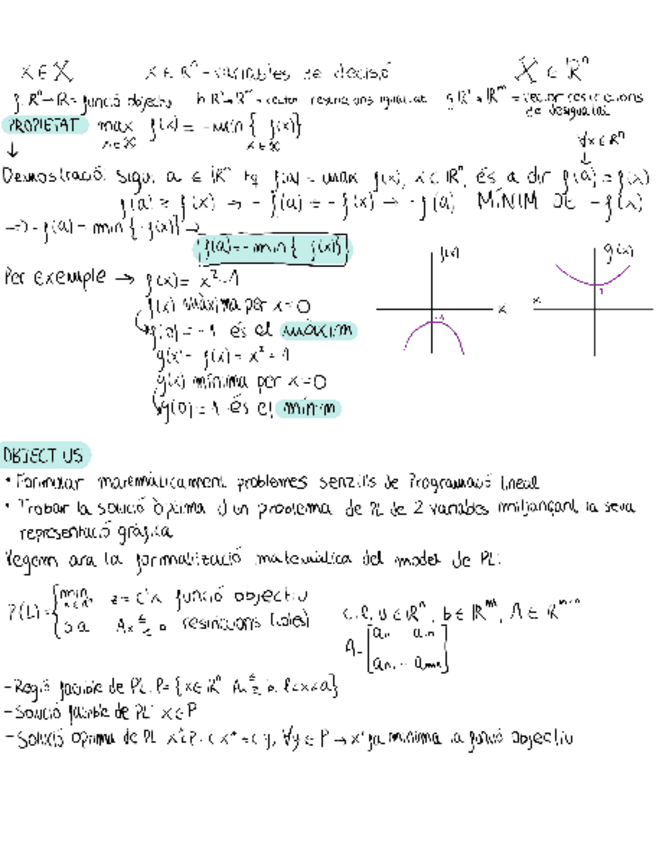 x ∈ X x ∈ Rⁿ - variables de decisió X ⊂ Rⁿ
f: Rⁿ → R = funció objectiu h: Rⁿ → Rᵐ = vector restriccions igualtat g: Rⁿ → Rᵐ = vector restriccions de desigualtat
PROPIETAT max f(x) = -min{ -f(x)}
x ∈ X x ∈ X
∀x ∈ Rⁿ
Demostració: Sigui a ∈ Rⁿ tq f(a) = max f(x), x ∈ Rⁿ, és a dir f(a) ≥ f(x)
f(a) ≥ f(x) → -f(a) ≤ -f(x) → -f(a) MÍNIM DE -f(x)
→ -f(a) = min{-f(x)} →
f(a) = -min{-f(x)}
Per exemple → f(x) =
f(x) màxima per x=0
f(0) = -1 és el màxim
g(x) = -f(x) = x² + 1
g(x) mínima per x=0
g(0) = 1 és el mínim
f(x) x -1
g(x) x 1
OBJECTIUS
• Formular matemàticament problemes senzills de Programació lineal
• Trobar la solució òptima d'un problema de PL de 2 variables mitjançant la seva
representació gràfica
Vegem ara la formalització matemàtica del model de PL:
P(L) = { min z = c'x funció objectiu
x ∈ Rⁿ
s.a restriccions
c, l, u ∈ Rⁿ, b ∈ Rᵐ, A ∈ Rᵐˣⁿ
A =
- Regió factible de PL: P = {x ∈ Rⁿ
- Solució factible de PL: x ∈ P
- Solució òptima de PL ∀y ∈ P → x* fa mínima la funció objectiu